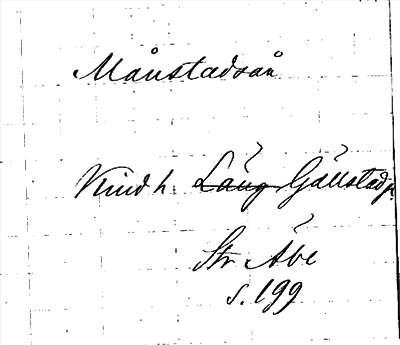 Månstadsån
Kind h. Läng Gällstad p.
Str Åbe
s. 199